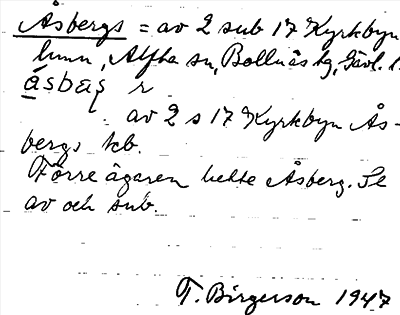 Åsbergs = av 2 sub 17 Kyrkbyn
lunn, Alfta sn, Bollnäs tg, Gävl. l.
åsbæs r
av 2 s 17 Kyrkbyn Ås-
bergs tcb.
Förre ägaren hette Åsberg. Se
av och sub.
T. Birgerson 1947